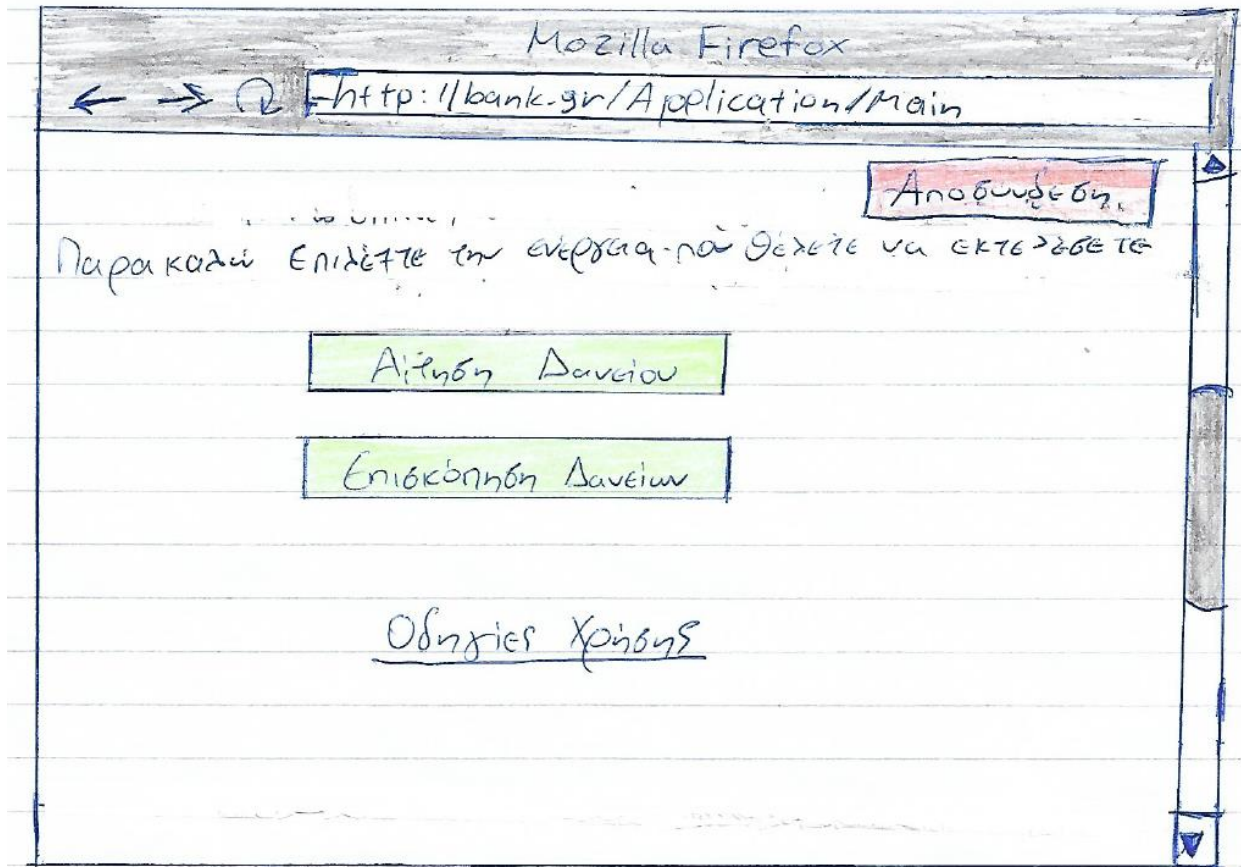 Mozilla Firefox
http://bank.gr/Application/Main
Αποσυνδεση
Παρακαλώ Επιλέξτε την ενέργεια που θέλετε να εκτελέσετε
Αίτηση Δανείου
Επισκόπηση Δανείων
Οδηγίες Χρήσης